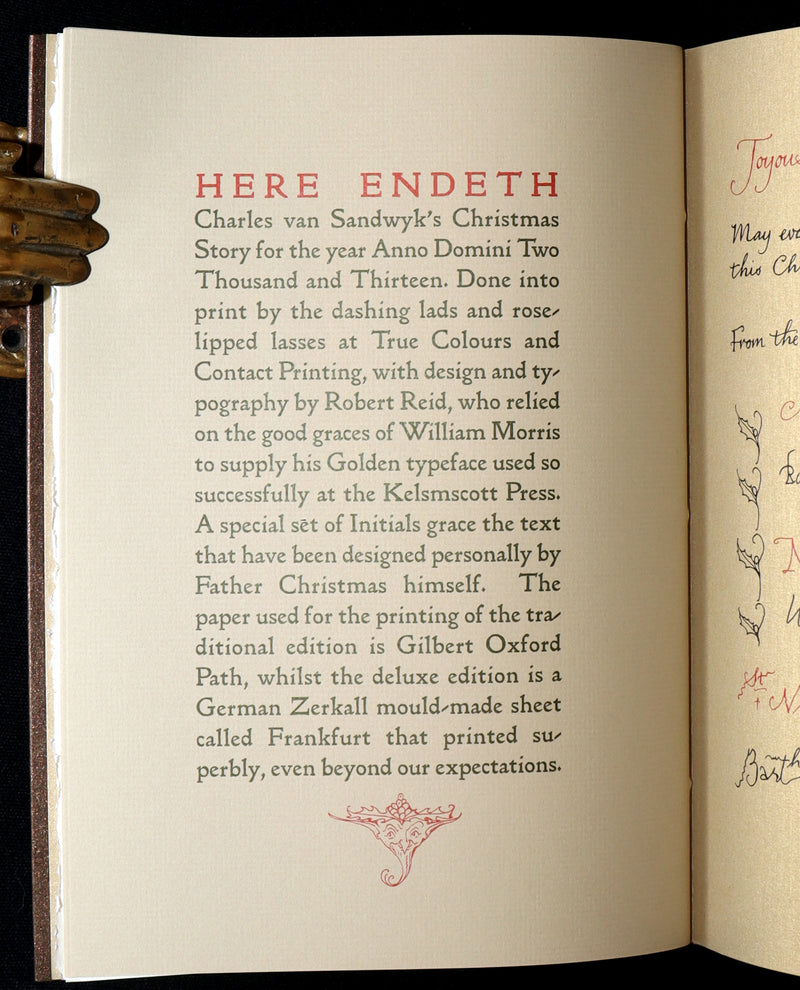 HERE ENDETH
Charles van Sandwyk's Christmas
Story for the year Anno Domini Two
Thousand and Thirteen. Done into
print by the dashing lads and rose-
lipped lasses at True Colours and
Contact Printing, with design and ty-
pography by Robert Reid, who relied
on the good graces of William Morris
to supply his Golden typeface used so
successfully at the Kelsmscott Press.
A special sēt of Initials grace the text
that have been designed personally by
Father Christmas himself. The
paper used for the printing of the tra-
ditional edition is Gilbert Oxford
Path, whilst the deluxe edition is a
German Zerkall mould-made sheet
called Frankfurt that printed su-
perbly, even beyond our expectations.
Joyous
May
this
From the